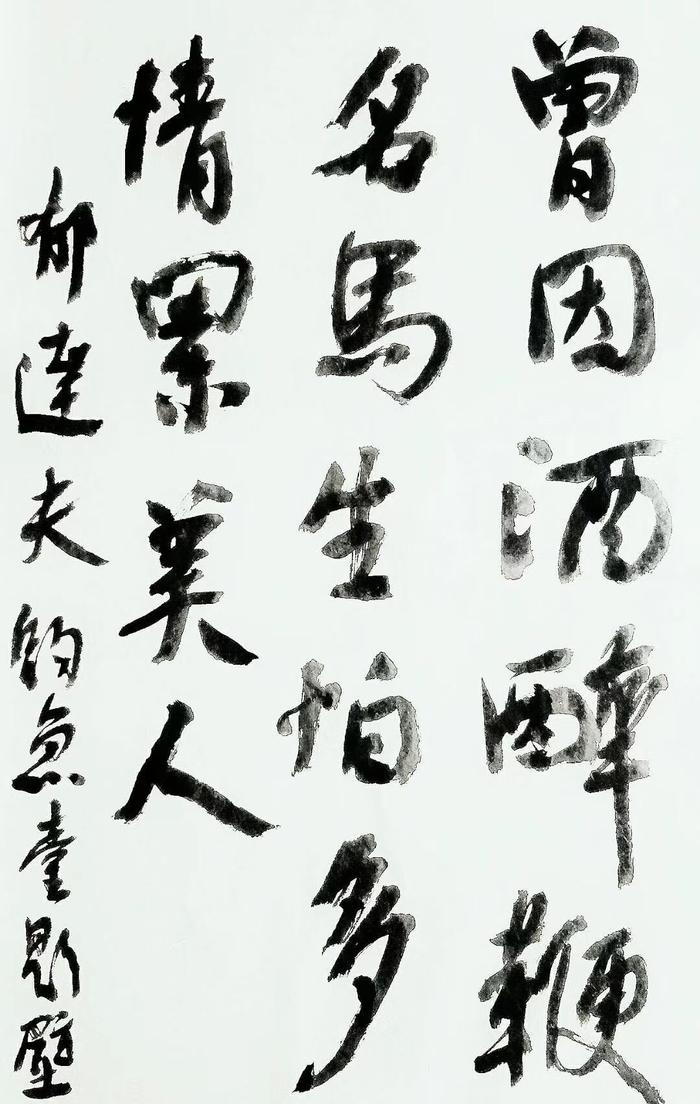 曾因酒醉鞭
名馬生怕多
情累美人
郁達夫釣魚臺題壁